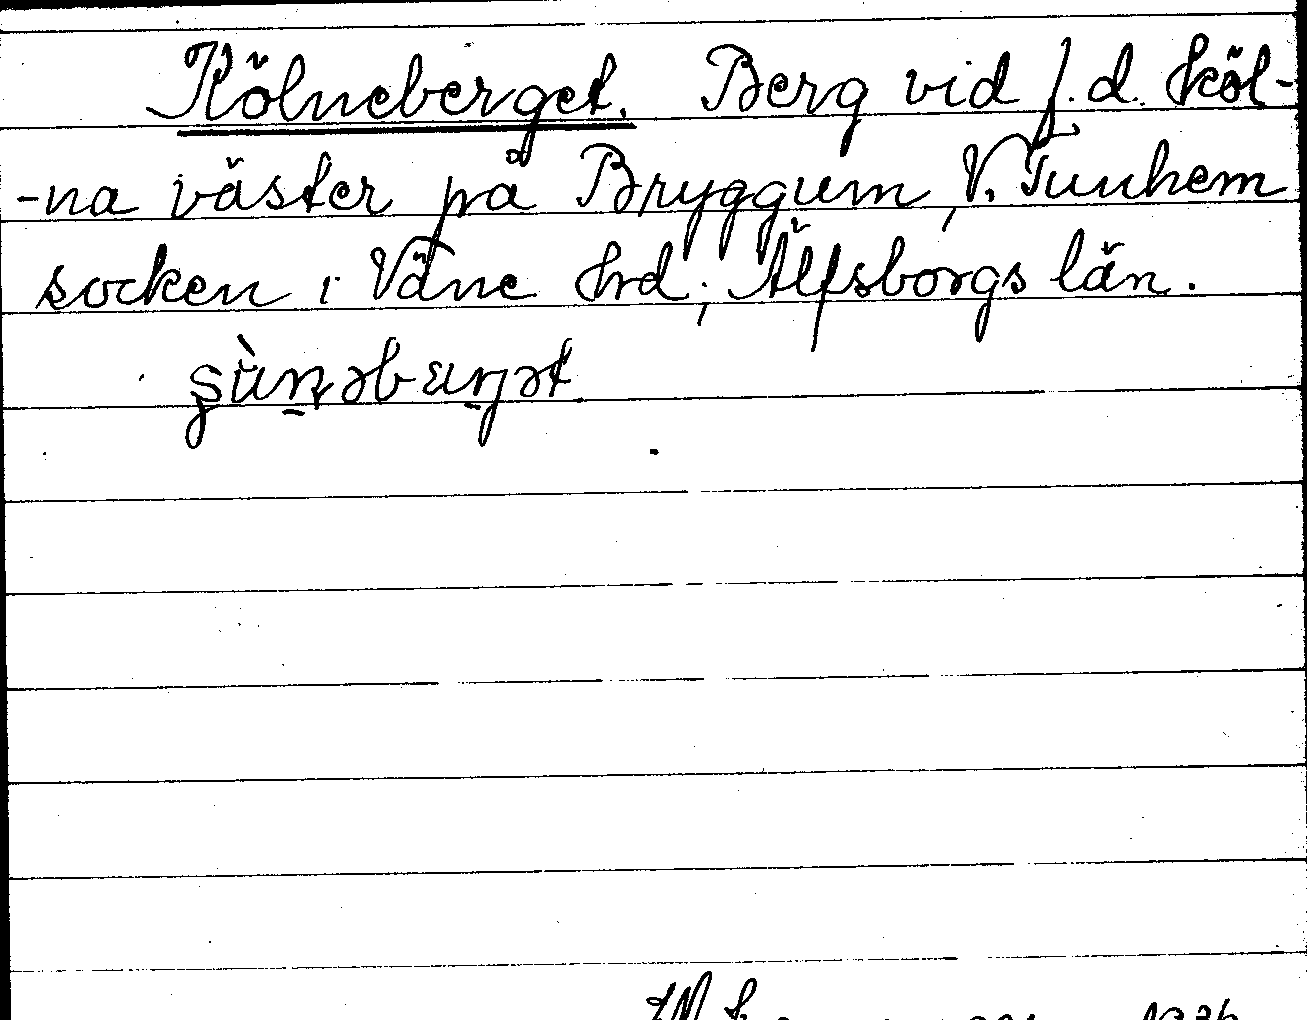 Kölneberget. Berg vid f.d. köl-
-na väster på Bryggum, V. Tunhem
socken i Väne hrd; Älfsborgs län.